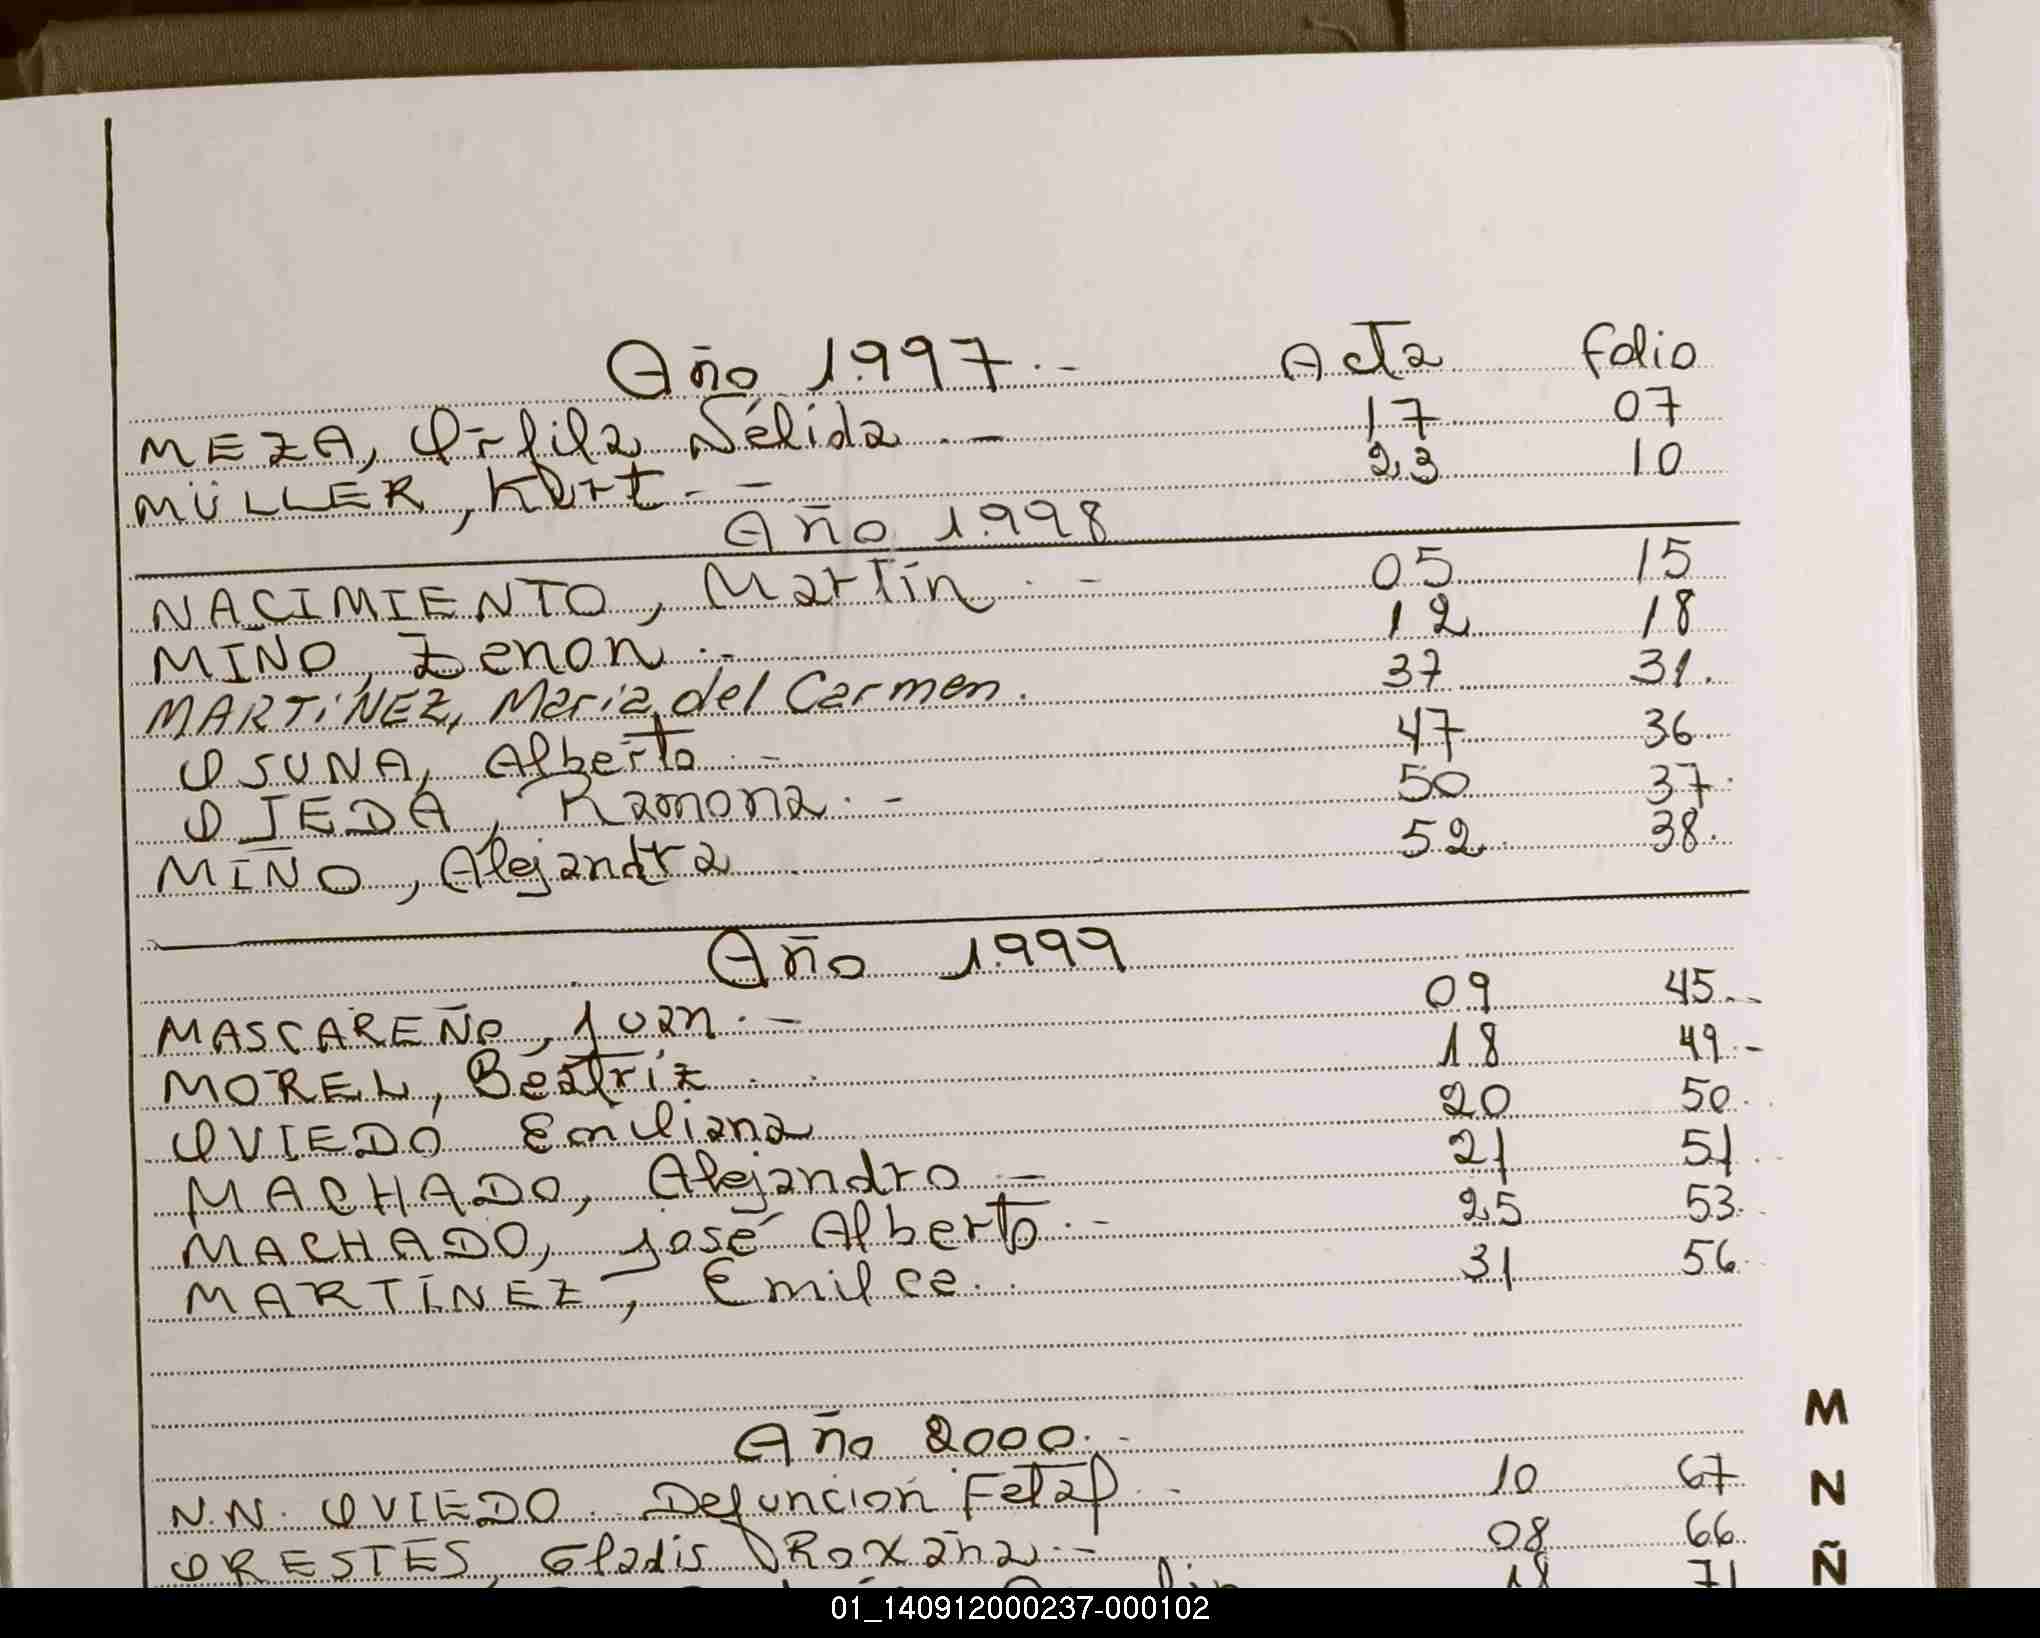 Año 1.997.- Acta folio
MEZA, Orfila Nélida.- 17 07
MÜLLER, Kurt.- 23 10
Año 1.998
NACIMIENTO, Martín.- 05 15
MIÑO, Zenon.- 12 18
MARTíNEZ, María del Carmen. 37 31.
OSUNA, Alberto.- 47 36.
OJEDA, Ramona.- 50 37.
MIÑO, Alejandra 52 38.
Año 1.999
MASCAREÑO, Juan.- 09 45.-
MOREL, Beatríz 18 49.-
OVIEDO Emiliana 20 50.
MACHADO, Alejandro.- 21 51.
MACHADO, José Alberto.- 25 53.
MARTÍNEZ, Emilce.. 31 56.
Año 2000.-
N.N. OVIEDO. Defuncion Fetal.- 10 67
ORESTES, Gladis Roxana.- 08 66.
18 71
M
N
Ñ
01_140912000237-000102